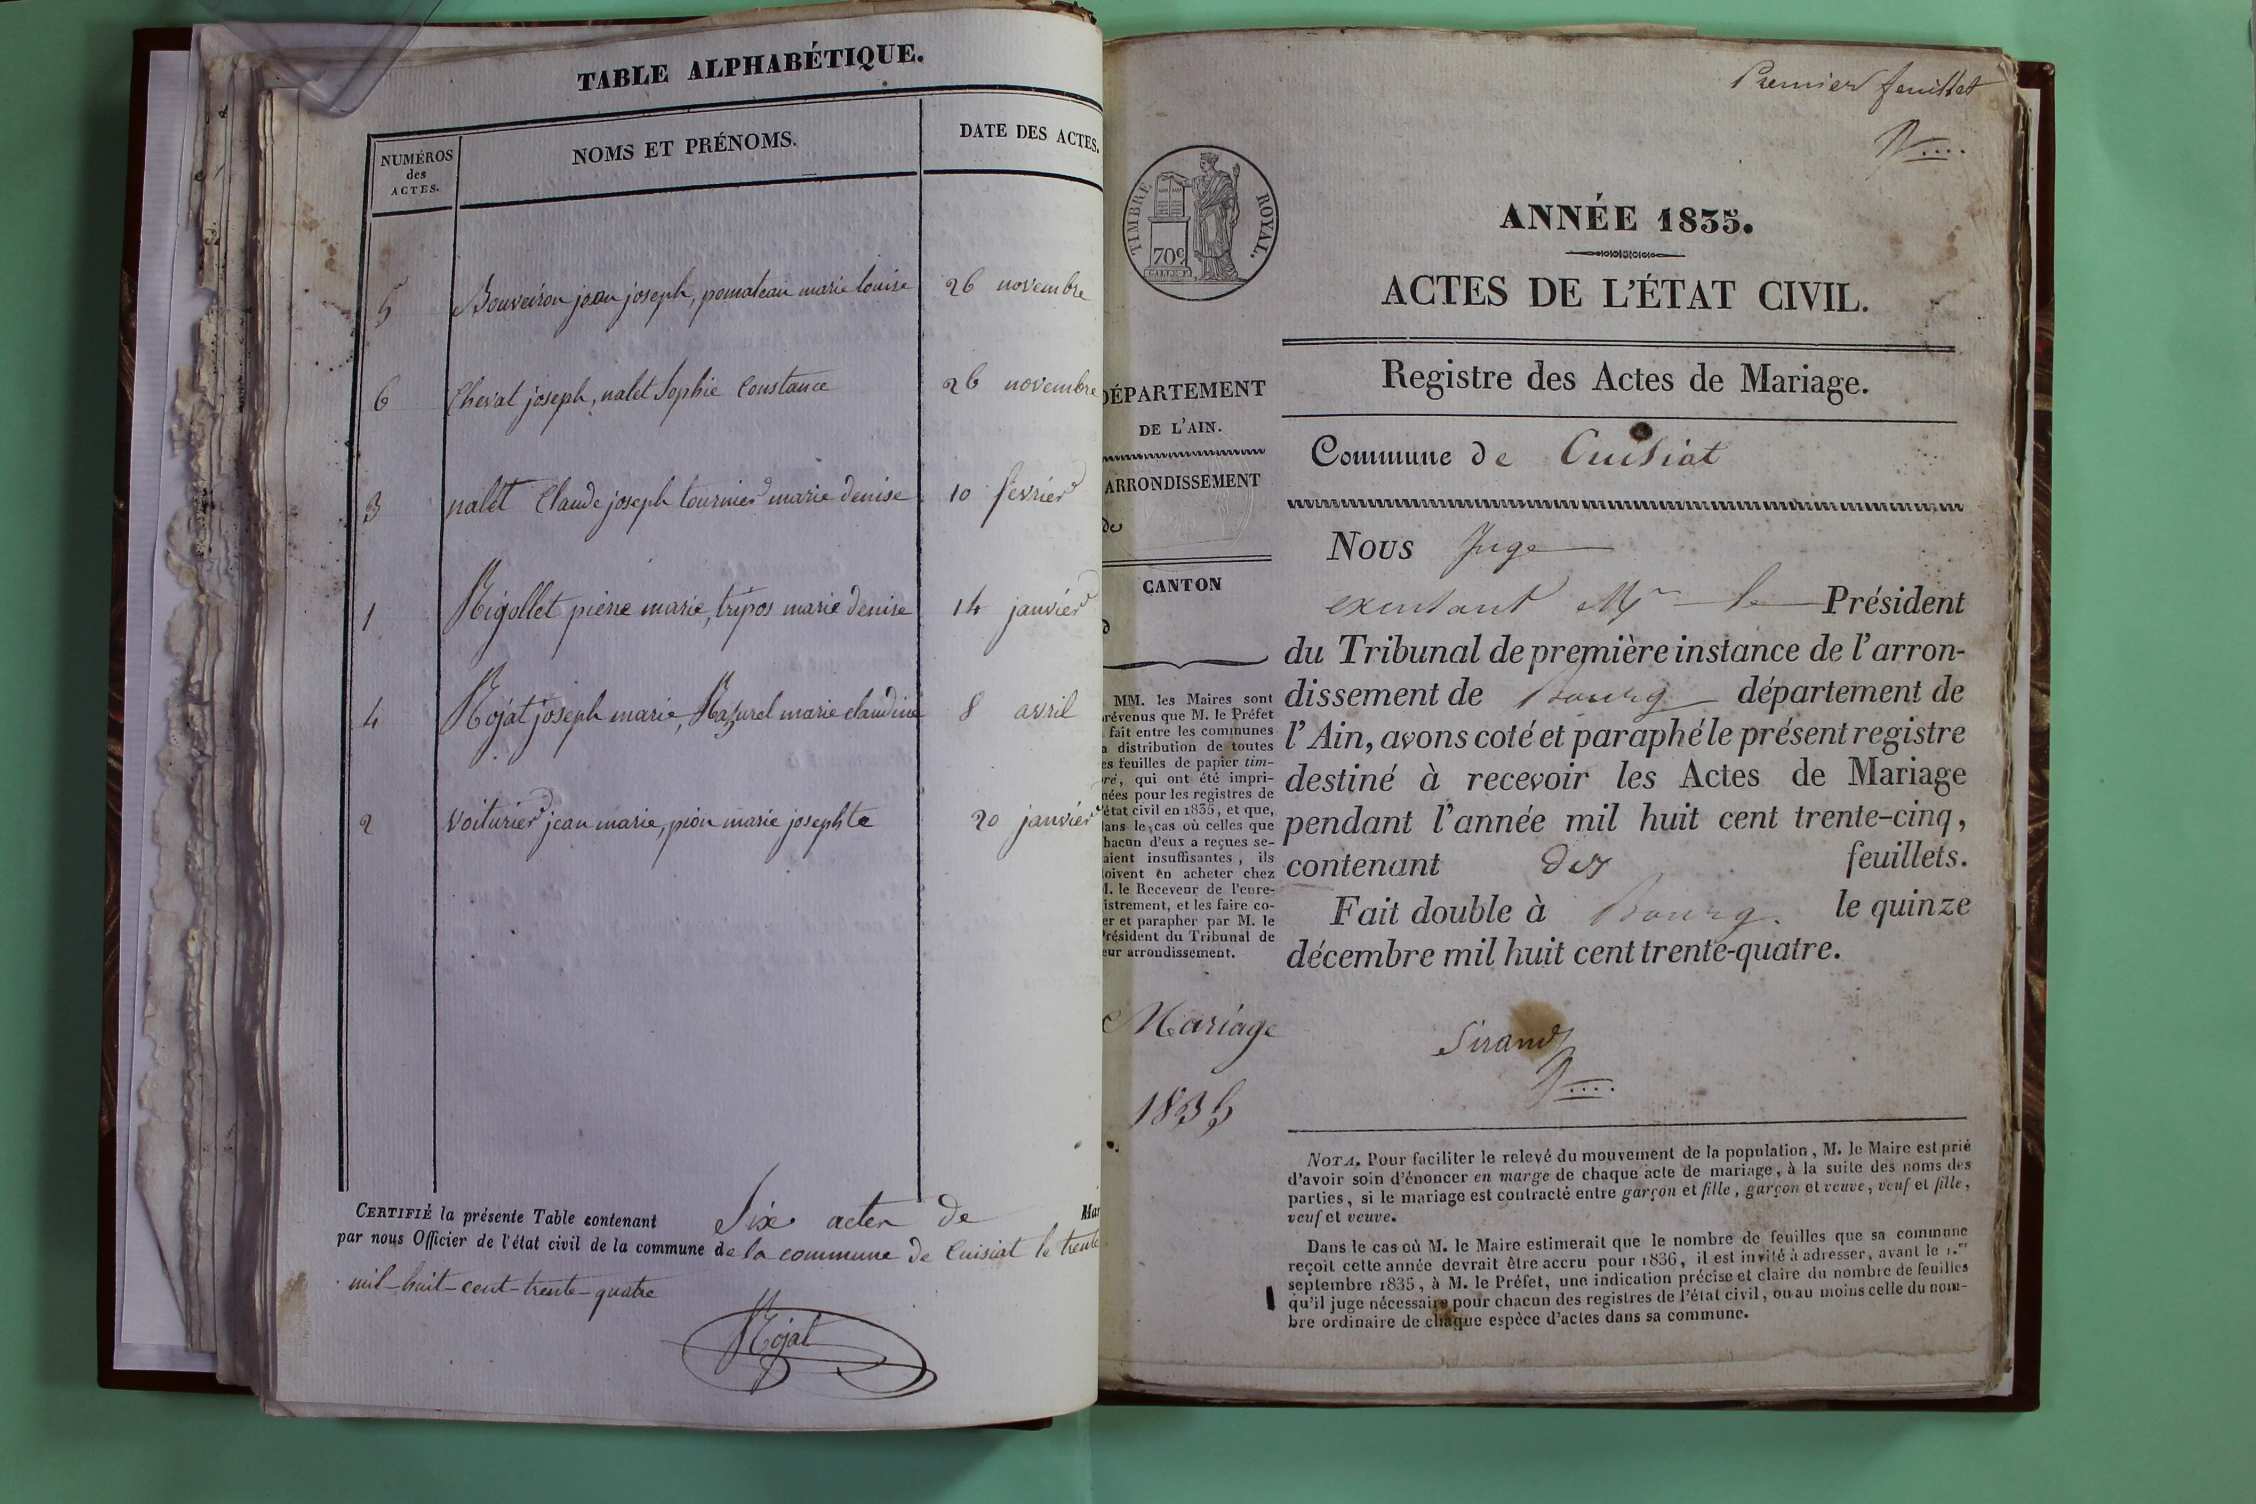 TABLE ALPHABÉTIQUE.
NUMÉROS
des
ACTES.
NOMS ET PRÉNOMS.
DATE DES ACTES.
5 Bouveiron jean joseph, pomateau marie louise 26 novembre
6 Cheval joseph, nalet Sophie Constance 26 novembre
3 nalet Claude joseph tournier marie denise 10 février
1 Rigollet pierre marie, tripos marie denise 14 janvier
4 Rojat joseph marie, Mazurel marie claudine 8 avril
2 voiturier jean marie, pion marie josephte 20 janvier
CERTIFIÉ la présente Table contenant Six actes de Mar
par nous Officier de l'état civil de la commune de la commune de Cuisiat le trente
mil-huit-cent-trente-quatre
Rojat
Premier feuillet
TIMBRE ROYAL.
70c
ANNÉE 1835.
ACTES DE L'ÉTAT CIVIL.
Registre des Actes de Mariage.
Commune de Cuisiat
DÉPARTEMENT
DE L'AIN.
ARRONDISSEMENT
de
CANTON
d
MM. les Maires sont
prévenus que M. le Préfet
fait entre les communes
a distribution de toutes
es feuilles de papier tim-
ré, qui ont été impri-
mées pour les registres de
'état civil en 1835, et que,
ans le cas où celles que
hacun d'eux a reçues se-
aient insuffisantes, ils
oivent en acheter chez
M. le Receveur de l'enre-
istrement, et les faire co-
er et parapher par M. le
Président du Tribunal de
eur arrondissement.
Mariage
1835
Nous Juge
exculant Mr le Président
du Tribunal de première instance de l'arron-
dissement de Bourg département de
l'Ain, avons coté et paraphé le présent registre
destiné à recevoir les Actes de Mariage
pendant l'année mil huit cent trente-cinq,
contenant dix feuillets.
Fait double à Bourg. le quinze
décembre mil huit cent trente-quatre.
Sirand
NOTA. Pour faciliter le relevé du mouvement de la population, M. le Maire est prié
d'avoir soin d'énoncer en marge de chaque acte de mariage, à la suite des noms des
parties, si le mariage est contracté entre garçon et fille, garçon et veuve, veuf et fille,
veuf et veuve.
Dans le cas où M. le Maire estimerait que le nombre de feuilles que sa commune
reçoit cette année devrait être accru pour 1836, il est invité à adresser, avant le 1.er
septembre 1835, à M. le Préfet, une indication précise et claire du nombre de feuilles
qu'il juge nécessaire pour chacun des registres de l'état civil, ou au moins celle du nom-
bre ordinaire de chaque espèce d'actes dans sa commune.